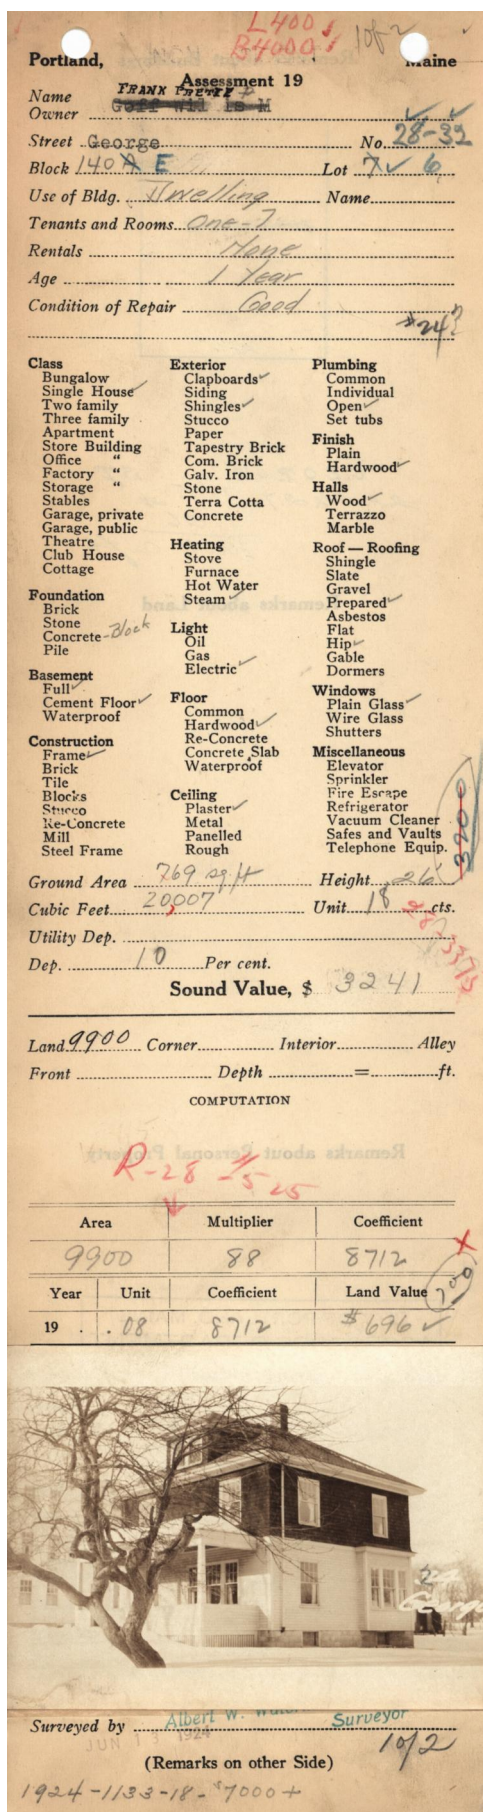 L400
B4000
1 of 2
Portland, Maine
Assessment 19
Name FRANK PRETE
Owner Goff Wil is M
Street George No. 28-32
Block 140 A E Lot 7 6
Use of Bldg. Dwelling Name
Tenants and Rooms One-7
Rentals None
Age 1 Year
Condition of Repair Good
Class
Bungalow
Single House ✓
Two family
Three family
Apartment
Store Building
Office "
Factory "
Storage "
Stables
Garage, private
Garage, public
Theatre
Club House
Cottage
Foundation
Brick
Stone
Concrete-Block
Pile
Basement
Full ✓
Cement Floor ✓
Waterproof
Construction
Frame ✓
Brick
Tile
Blocks
Stucco
Re-Concrete
Mill
Steel Frame
Exterior
Clapboards ✓
Siding
Shingles ✓
Stucco
Paper
Tapestry Brick
Com. Brick
Galv. Iron
Stone
Terra Cotta
Concrete
Heating
Stove
Furnace
Hot Water
Steam ✓
Light
Oil
Gas
Electric ✓
Floor
Common
Hardwood ✓
Re-Concrete
Concrete Slab
Waterproof
Ceiling
Plaster ✓
Metal
Panelled
Rough
Plumbing
Common
Individual
Open ✓
Set tubs
Finish
Plain
Hardwood ✓
Halls
Wood ✓
Terrazzo
Marble
Roof — Roofing
Shingle
Slate
Gravel
Prepared ✓
Asbestos
Flat
Hip ✓
Gable
Dormers
Windows
Plain Glass ✓
Wire Glass
Shutters
Miscellaneous
Elevator
Sprinkler
Fire Escape
Refrigerator
Vacuum Cleaner
Safes and Vaults
Telephone Equip.
3200
Ground Area 769 sq ft Height 26
Cubic Feet 20007 Unit 18 cts.
28-3375
Utility Dep.
Dep. 10 Per cent.
Sound Value, $ 3241
Land 9900 Corner Interior Alley
Front Depth = ft.
COMPUTATION
R-28
Area Multiplier Coefficient
9900 88 8712
Year Unit Coefficient Land Value
700
19 .08 8712 $696 ✓
24
Surveyed by Albert W. Surveyor
JUN 1924
1 of 2
(Remarks on other Side)
1924-1133-18-$7000+